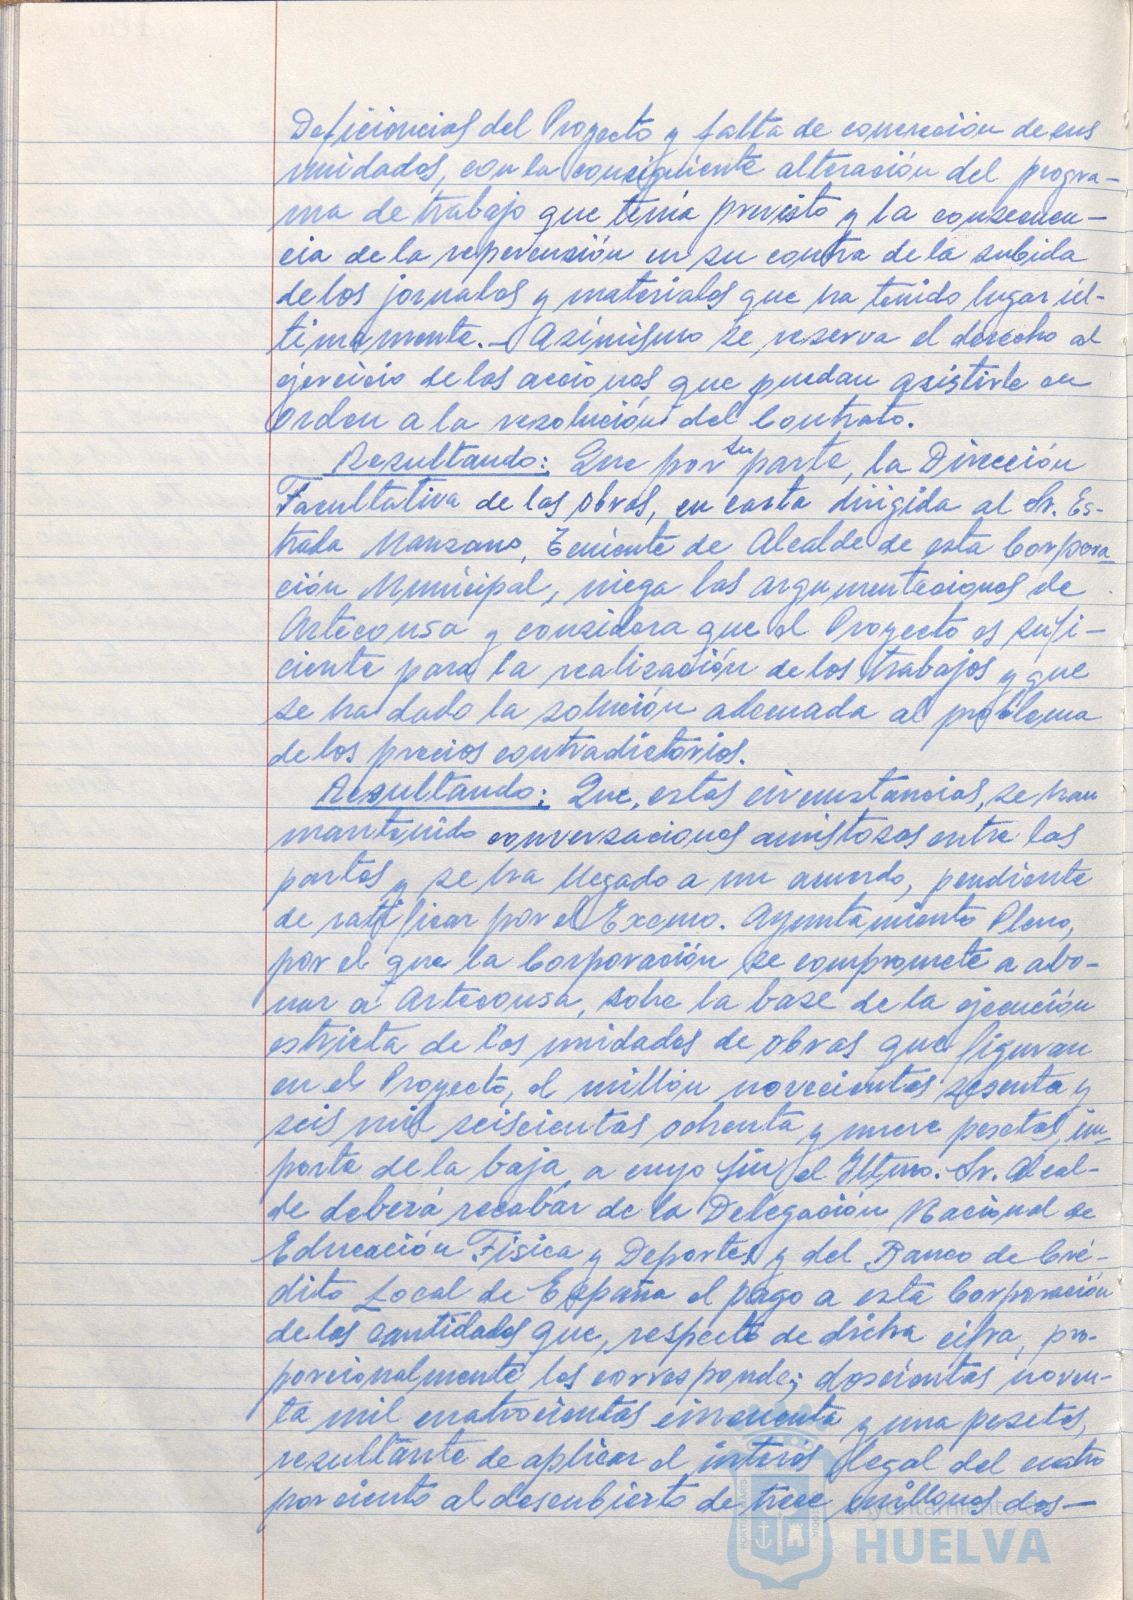 Deficiencias del Proyecto y falta de concreción de sus
unidades, con la consiguiente alteración del progra-
ma de trabajo que tenia previsto y la consecuen-
cia de la repercusión en su contra de la subida
de los jornales y materiales que ha tenido lugar úl-
timamente.- Asimismo se reserva el derecho al
ejercicio de las acciones que puedan asistirle en
orden a la resolución del Contrato.
Resultando: Que por su parte, la Dirección
Facultativa de las obras, en carta dirigida al Sr. Es-
trada Manzano, Teniente de Alcalde de esta Corpora-
ción Municipal, niega las argumentaciones de
Arteconsa y considera que el Proyecto es sufi-
ciente para la realización de los trabajos y que
se ha dado la solución adecuada al problema
de los precios contradictorios.
Resultando: Que, estas circunstancias, se han
mantenido conversaciones amistosas entre las
partes y se ha llegado a un acuerdo, pendiente
de ratificar por el Excmo. Ayuntamiento Pleno,
por el que la Corporación se compromete a abo-
nar a Arteconsa, sobre la base de la ejecución
estricta de los unidades de obras que figuran
en el Proyecto, el millón novecientas sesenta y
seis mil seiscientas ochenta y nueve pesetas, im-
porte de la baja, a cuyo fin el Iltmo. Sr. Alcal-
de deberá recabar de la Delegación Nacional de
Educación Fisica y Deportes y del Banco de Cré-
dito Local de España el pago a esta Corporación
de las cantidades que, respecto de dicha cifra, pro-
porcionalmente les corresponde; doscientas noven-
ta mil cuatrocientas cincuenta y una pesetas,
resultante de aplicar el interes legal del cuatro
por ciento al descubierto de trece millones dos-
Ayuntamiento de
HUELVA